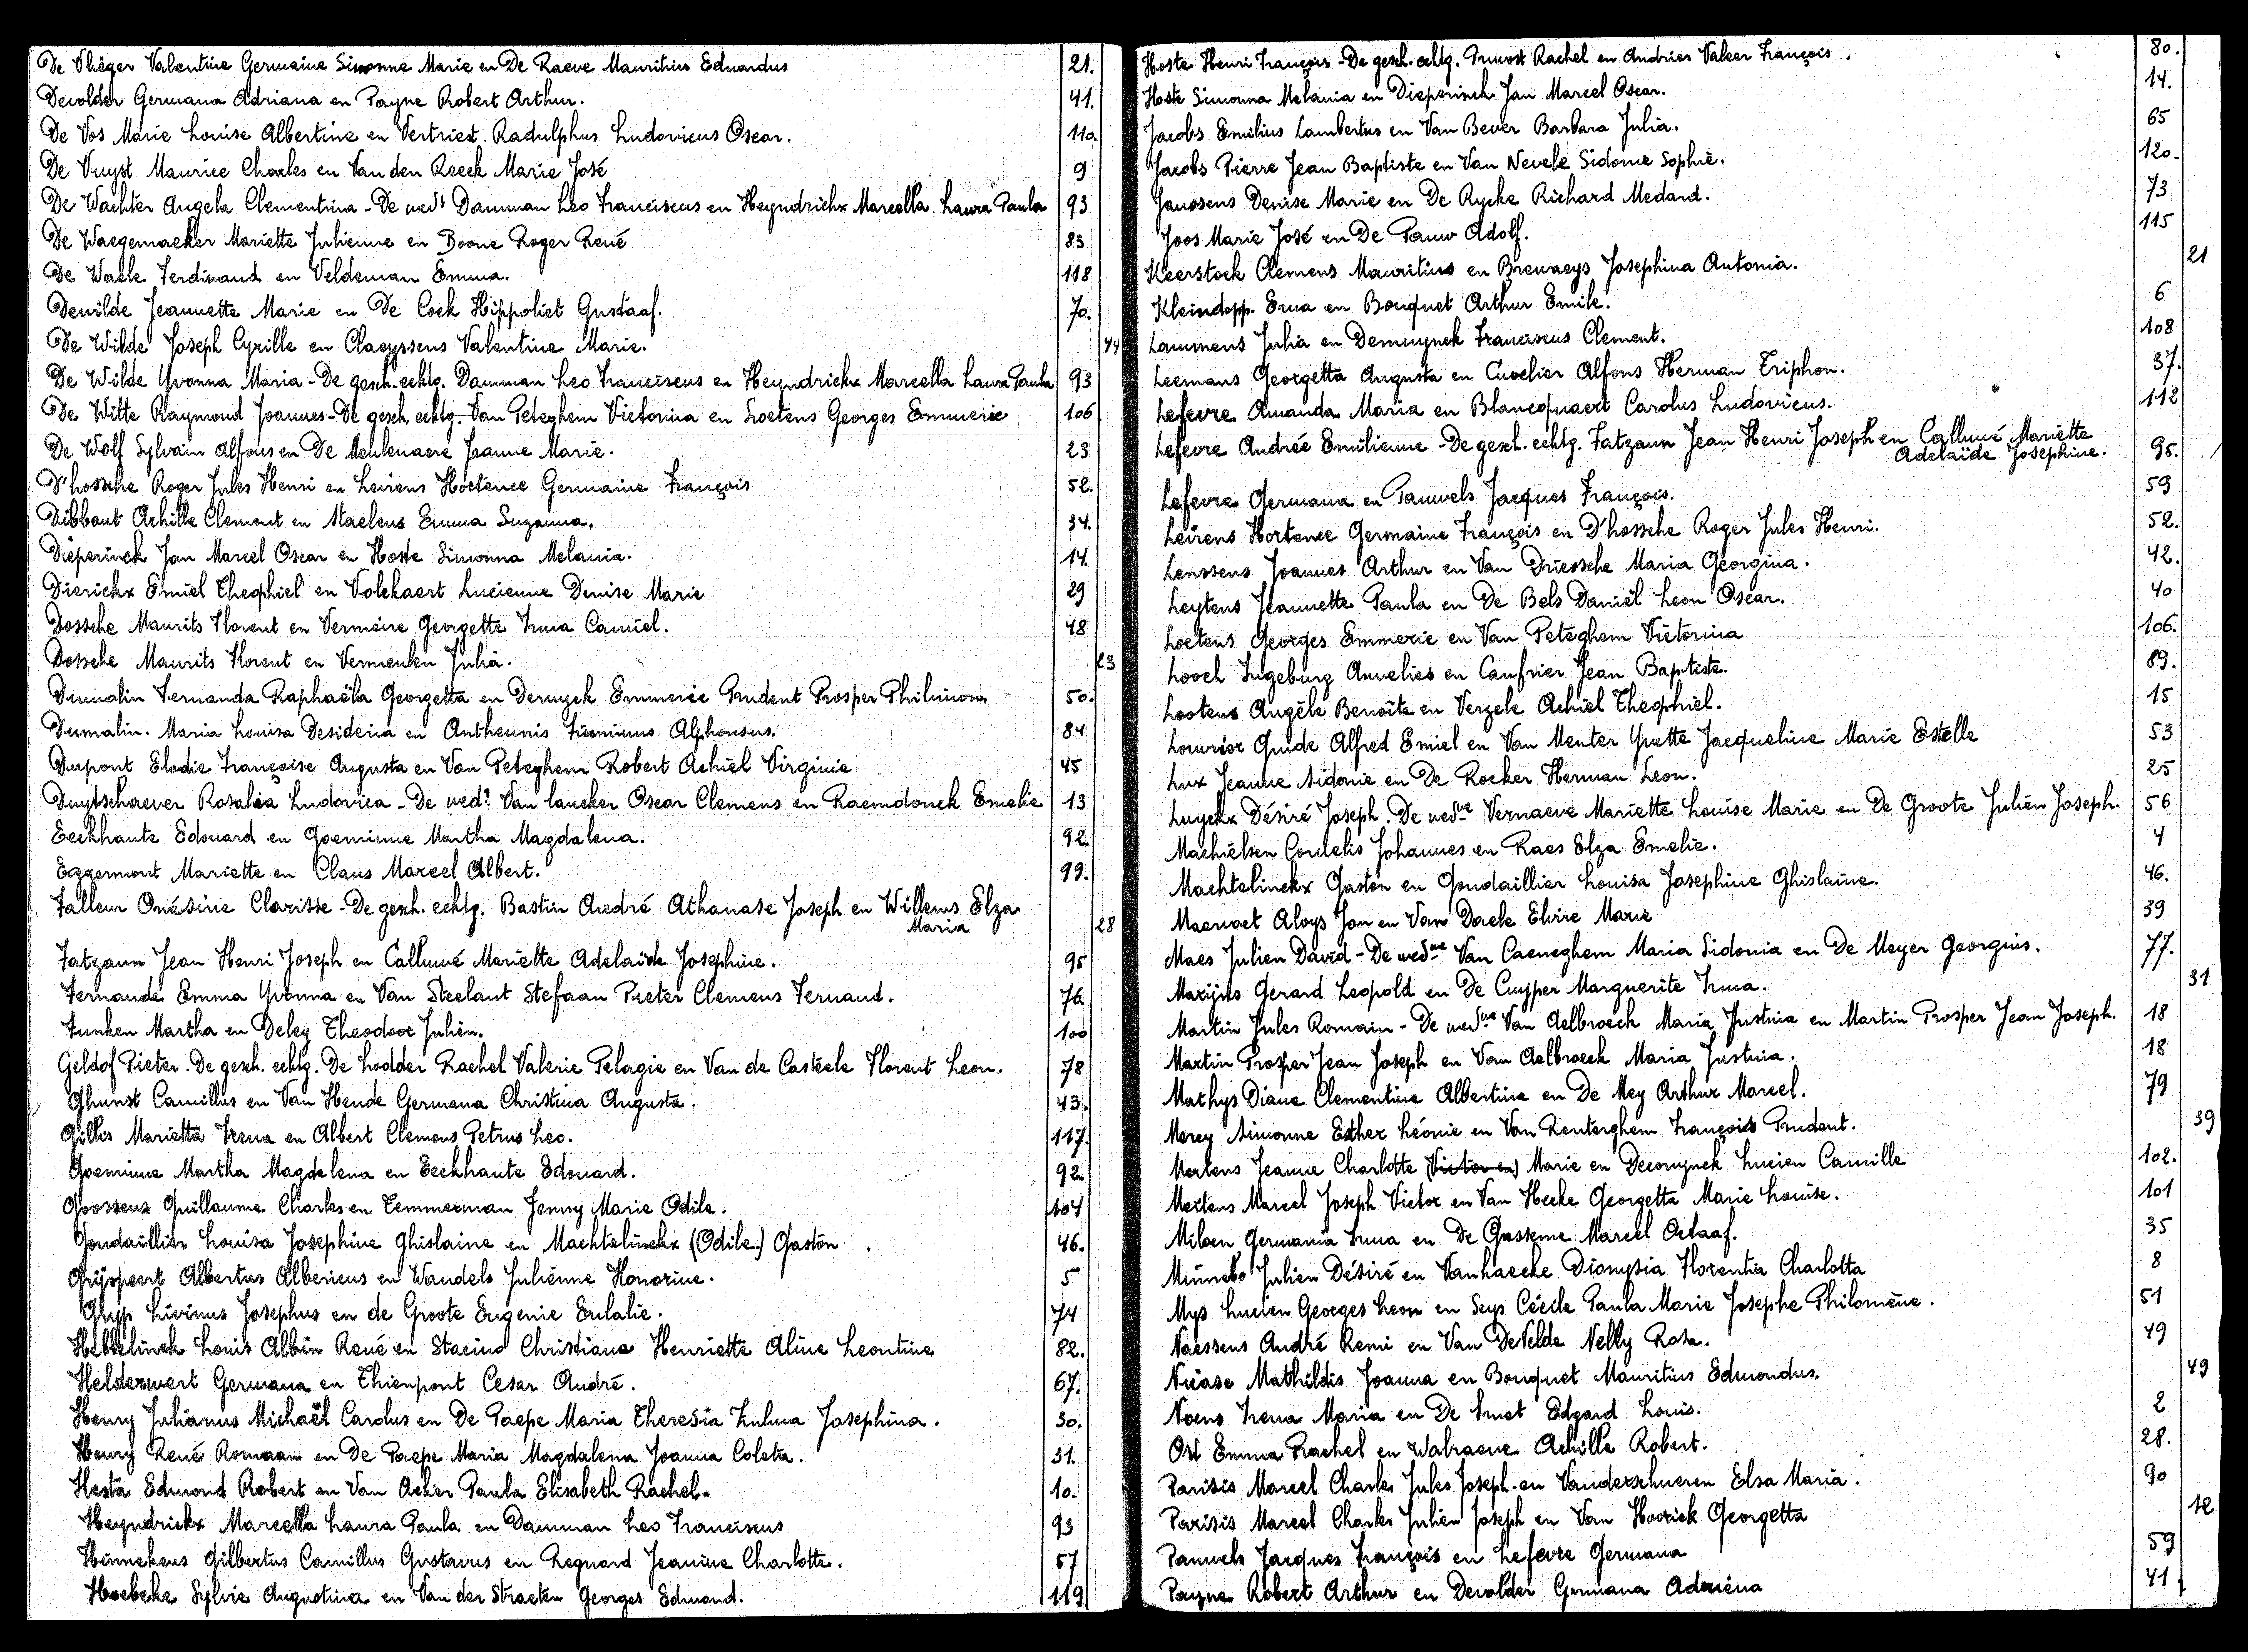 De Vlieger Valentine Germaine Simonne Marie en De Raeve Mauritius Eduardus 21.
Devolder Germana Adriana en Payne Robert Arthur. 41.
De Vos Marie Louise Albertine en Vertriest Radulphus Ludovicus Oscar. 110.
De Vuyst Maurice Charles en Van den Reeck Marie José 9
De Wachter Angela Clementina - De wed: Damman Leo Franciscus en Heyndrickx Marcella Laura Paula 93
De Waegemaeker Mariette Julienne en Boone Roger René 83
De Waele Ferdinand en Veldeman Emma. 118
Dewilde Jeannette Marie en De Cock Hippoliet Gustaaf. 70.
De Wilde Joseph Cyrille en Claeyssens Valentine Marie. 44
De Wilde Yvonna Maria - De gesch. echtg. Damman Leo Franciscus en Heyndrickx Marcella Laura Paula 93
De Witte Raymond Joannes - De gesch. echtg. Van Peteghem Victorina en Loetens Georges Emmerie 106
De Wolf Sylvain Alfons en De Meulenaere Jeanne Marie. 23
D'hossche Roger Jules Henri en Leirens Hortence Germaine François 52.
Dibbaut Achille Clement en Staelens Emma Suzanna. 34.
Dieperinck Jan Marcel Oscar en Hoste Simonna Melania. 14.
Dierickx Emiel Theophiel en Volckaert Lucienne Denise Marie 29
Dossche Maurits Florent en Vermeire Georgette Irma Camiel. 48
Dossche Maurits Florent en Vermeulen Julia. 23
Dumalin Fernanda Raphaëla Georgetta en Dermyck Emmerie Prudent Prosper Philimon 50.
Dumalin. Maria Louisa Desideria en Antheunis Firminus Alphonsus. 84
Dupont Elodie Françoise Augusta en Van Peteghem Robert Achiel Virginie 45
Duytschaever Rosalia Ludovica - De wed: Van Laecker Oscar Clemens en Raemdonck Emelie 13
Eeckhaute Edouard en Goeminne Martha Magdalena. 92.
Eggermont Mariette en Claus Marcel Albert. 99.
Falleur Onésine Clarisse - De gesch. echtg. Bastin André Athanase Joseph en Willems Elza
Maria 28
Fatzaun Jean Henri Joseph en Calluwé Mariette Adelaïde Josephine. 95
Fernande Emma Yvonna en Van Steelant Stefaan Pieter Clemens Fernand. 76.
Funken Martha en Deley Theodoor Julien. 100
Geldof Pieter. De gesch. echtg. De Lodder Rachel Valerie Pelagie en Van de Casteele Florent Leon. 78
Ghunst Camillus en Van Hende Germana Christina Augusta. 43.
Gillis Marietta Irena en Albert Clemens Petrus Leo. 117.
Goeminne Martha Magdalena en Eeckhaute Edouard. 92.
Goossens Guillaume Charles en Temmerman Jenny Marie Odile. 104
Goudaillier Louisa Josephine Ghislaine en Machtelinckx (Odile.) Gaston 46.
Grijspeert Albertus Albericus en Wandels Julienne Honorine. 5
Gryp Livinus Josephus en de Groote Eugenie Eulalie. 74
Hebbelinck Louis Albin René en Staeino Christiane Henriette Aline Leontine 82.
Helderwert Germana en Thienpont Cesar André. 67.
Henry Julianus Michaël Carolus en De Paepe Maria Theresia Zulma Josephina. 30.
Henry René Romaan en De Paepe Maria Magdalena Joanna Coleta. 31.
Hesta Edmond Robert en Van Acker Paula Elisabeth Rachel. 10.
Heyndrickx Marcella Laura Paula en Damman Leo Franciscus 93
Hinnekens Gilbertus Camillus Gustavus en Regnard Jeanine Charlotte. 57
Hoebeke Sylvie Augustina en Van der Straeten Georges Edmond. 119
Hoste Henri François - De gesch. echtg. Pruvost Rachel en Andries Valeer François. 80.
Hoste Simonna Melania en Dieperinck Jan Marcel Oscar. 14.
Jacobs Emilius Lambertus en Van Bever Barbara Julia. 65
Jacobs Pierre Jean Baptiste en Van Nevele Sidonie Sophie. 120.
Janssens Denise Marie en De Rycke Richard Medard. 73
Joos Marie José en De Pauw Adolf. 115
Keerstock Clemens Mauritius en Brewaeys Josephina Antonia. 21
Kleindopp. Erna en Bouquet Arthur Emile. 6
Lammens Julia en Demuynck Franciscus Clement. 108
Leemans Georgetta Augusta en Cuvelier Alfons Herman Triphon. 37.
Lefevre Amanda Maria en Blancquaert Carolus Ludovicus. 112
Lefevre Andrée Emilienne - De gesch. echtg. Fatzaun Jean Henri Joseph en Calluwé Mariette
Adelaïde Josephine. 95.
Lefevre Germana en Pauwels Jacques François. 59
Leirens Hortence Germaine François en D'hossche Roger Jules Henri. 52.
Lenssens Joannes Arthur en Van Driessche Maria Georgina. 42.
Leytens Jeannette Paula en De Bels Daniël Leon Oscar. 40
Loetens Georges Emmerie en Van Peteghem Victorina 106.
Looch Ingeburg Annelies en Caufrier Jean Baptiste. 89.
Lootens Angèle Benoîte en Verzele Achiel Theophiel. 15
Louvrier Guide Alfred Emiel en Van Menter Yvette Jacqueline Marie Estelle 53
Lux Jeanne Sidonie en De Rocker Herman Leon. 25
Luyckx Désiré Joseph. De wedwe Vernaeve Mariette Louise Marie en De Groote Julien Joseph. 56
Machielsen Cornelis Johannes en Raes Elza Emelie. 4
Machtelinckx Gaston en Goudaillier Louisa Josephine Ghislaine. 46.
Maenoet Aloys Jan en Van Daele Elvire Marie 39
Maes Julien David - De wedwe Van Caeneghem Maria Sidonia en De Meyer Georgius. 77.
Marijns Gerard Leopold en De Cuyper Marguerite Irma. 31
Martin Jules Romain - De wedwe Van Aelbroeck Maria Justina en Martin Prosper Jean Joseph. 18
Martin Prosper Jean Joseph en Van Aelbroeck Maria Justina. 18
Mathys Diane Clementine Albertine en De Mey Arthur Marcel. 79
Merey Simonne Esther Léonie en Van Renterghem François Prudent. 39
Mertens Jeanne Charlotte (Victor en) Marie en Deconynck Lucien Camille 102.
Mertens Marcel Joseph Victor en Van Hecke Georgetta Marie Louise. 101
Milsen Germania Irma en De Gusseme Marcel Octaaf. 35
Minnebo Julien Désiré en Vanhaecke Dionysia Florentia Charlotta 8
Mys Lucien Georges Leon en Seys Cécile Paula Marie Josephe Philomène. 51
Naessens André Remi en Van De Velde Nelly Rosa. 49
Nicase Mathildis Joanna en Bouquet Mauritius Edmondus. 49
Noens Irena Maria en De Smet Edgard Louis. 2
Ost Emma Rachel en Walraeve Achille Robert. 28.
Parisis Marcel Charles Jules Joseph en Vanderschueren Elsa Maria. 90
Parisis Marcel Charles Julien Joseph en Van Hoorick Georgetta 12
Pauwels Jacques François en Lefevre Germana 59
Payne Robert Arthur en Devolder Germana Adriana 41